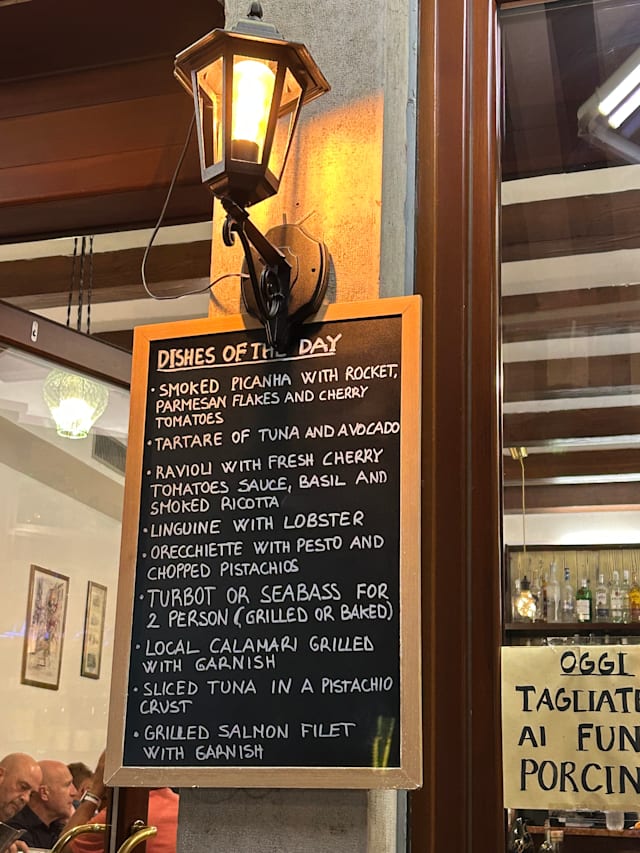 DISHES OF THE DAY
• SMOKED PICANHA WITH ROCKET,
PARMESAN FLAKES AND CHERRY
TOMATOES
• TARTARE OF TUNA AND AVOCADO
• RAVIOLI WITH FRESH CHERRY
TOMATOES SAUCE, BASIL AND
SMOKED RICOTTA
• LINGUINE WITH LOBSTER
• ORECCHIETTE WITH PESTO AND
CHOPPED PISTACHIOS
• TURBOT OR SEABASS FOR
2 PERSON (GRILLED OR BAKED)
• LOCAL CALAMARI GRILLED
WITH GARNISH
• SLICED TUNA IN A PISTACHIO
CRUST
• GRILLED SALMON FILET
WITH GARNISH
OGGI
TAGLIATE
AI FUN
PORCIN